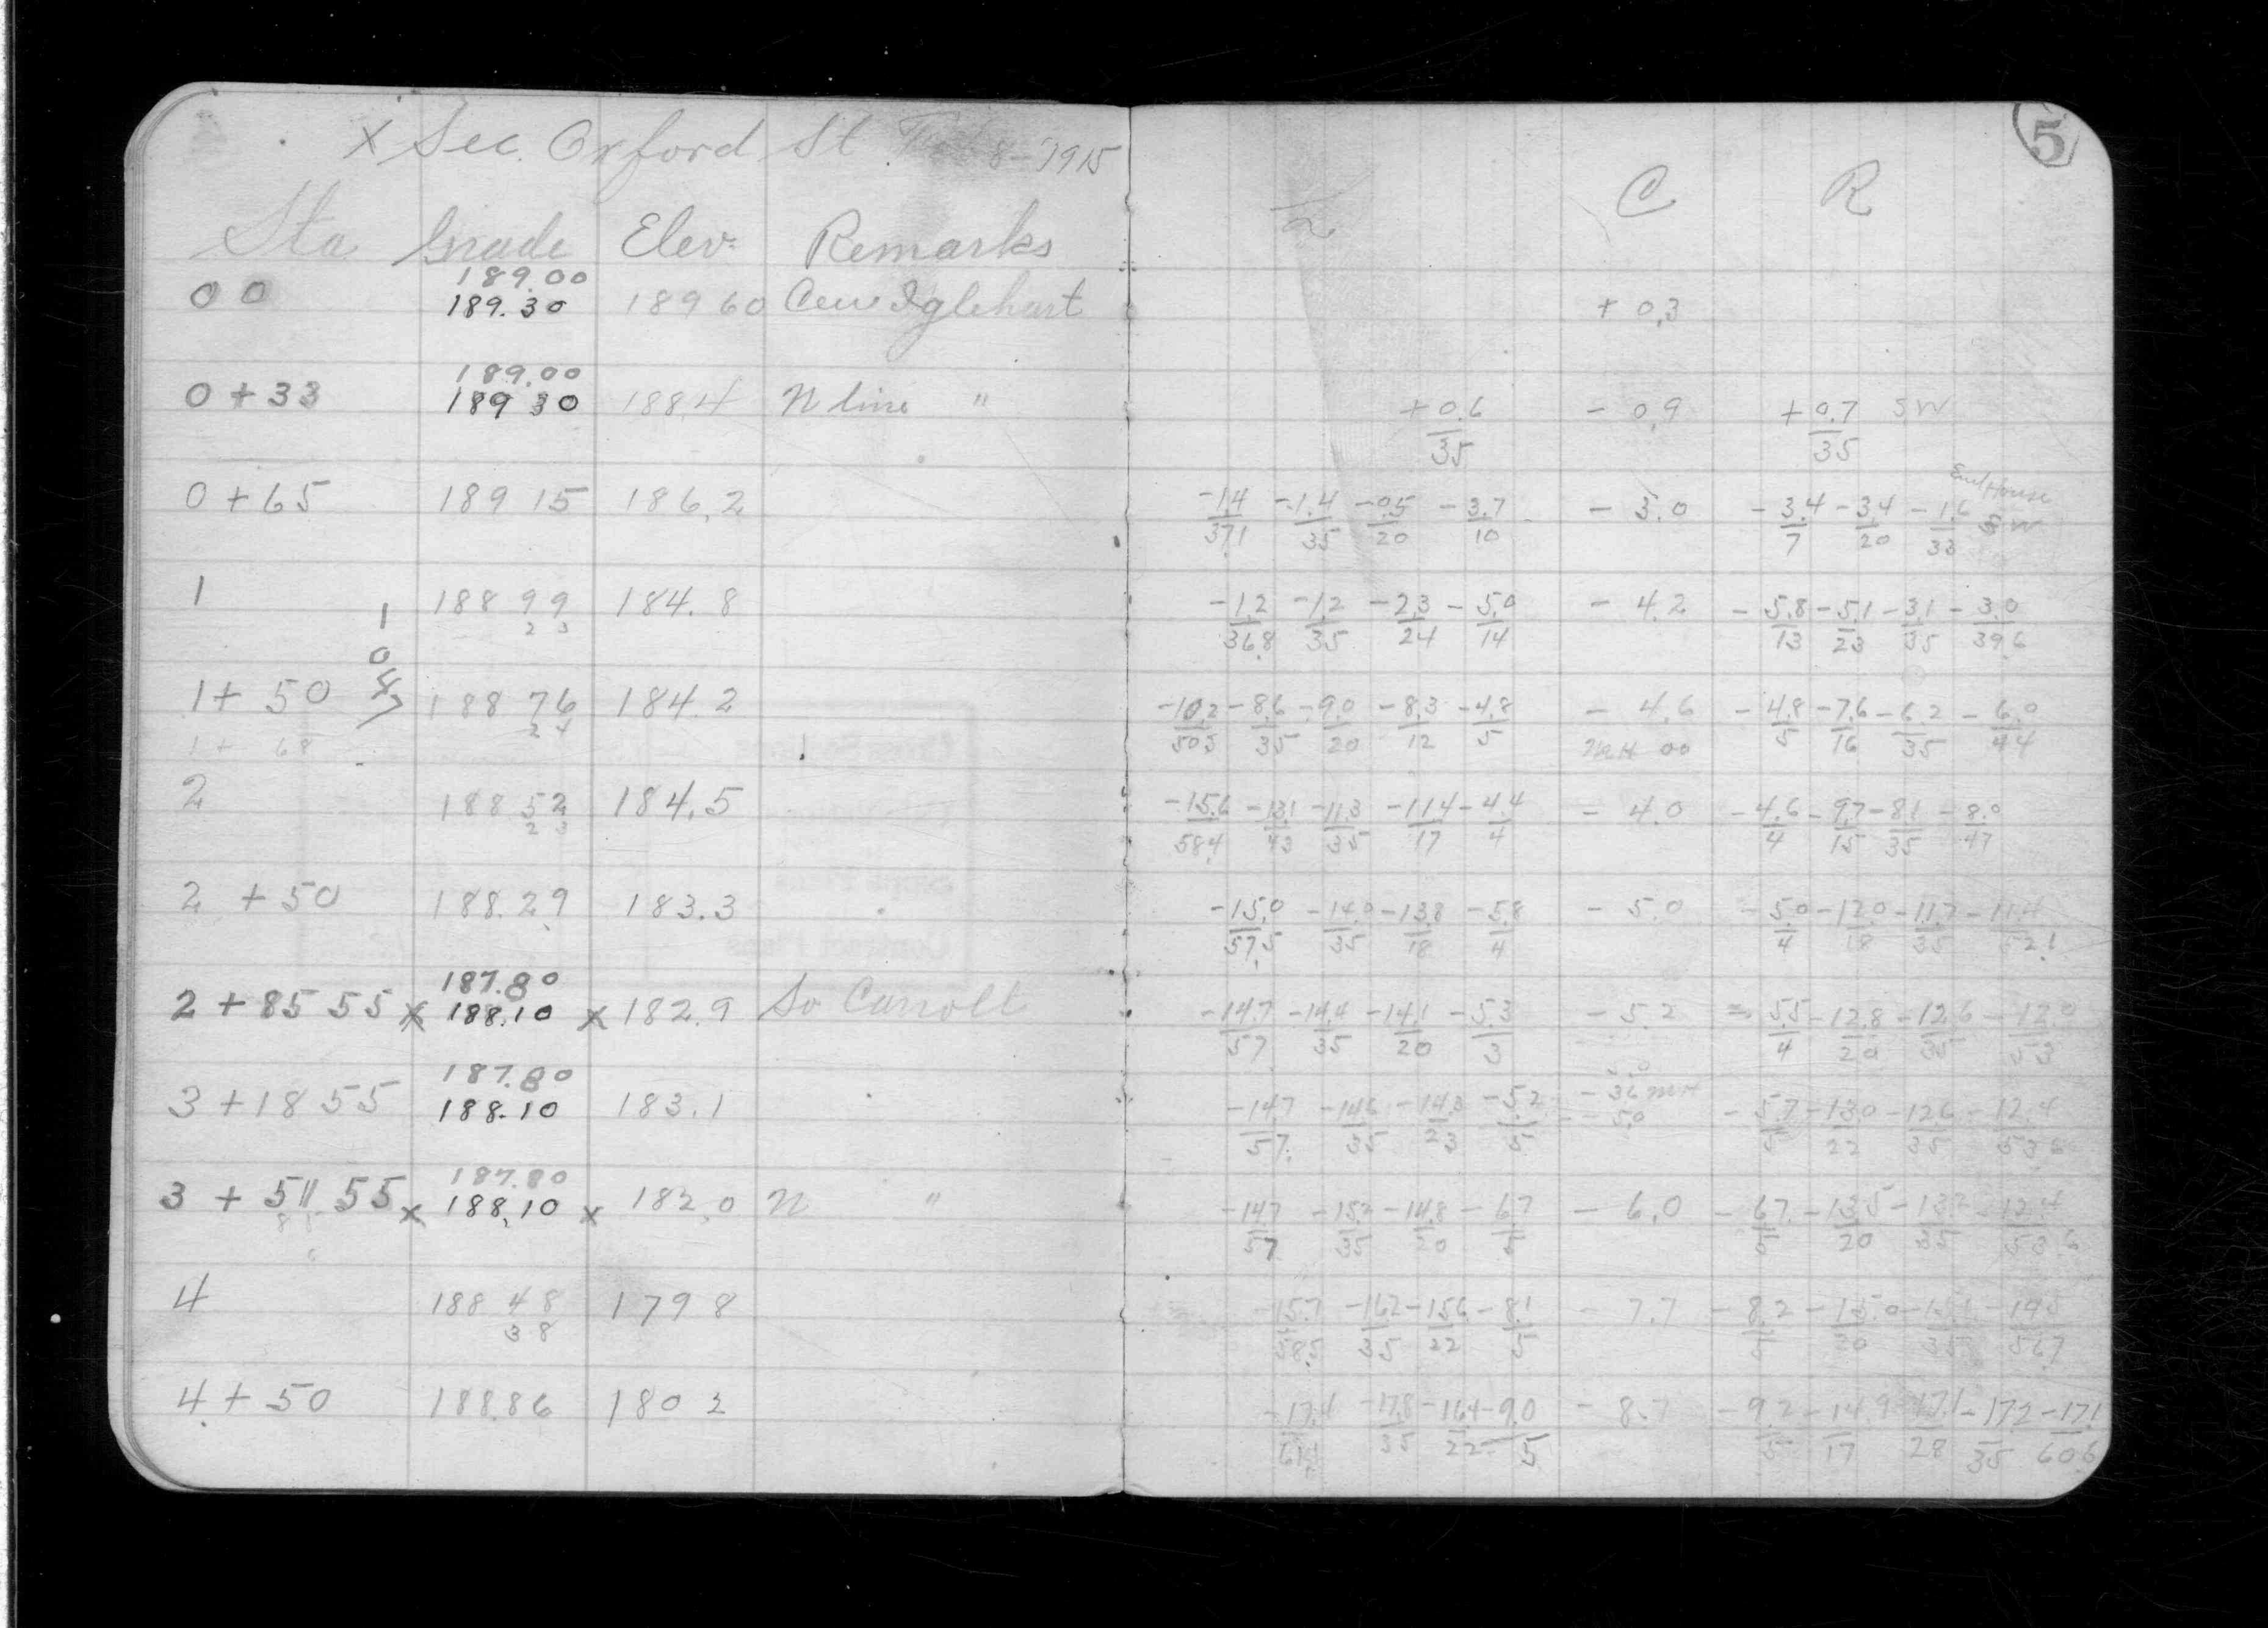 X Sec. Oxford St 8-1915
Sta Grade Elev. Remarks
189.00
00 189.30 189 60 Cen Iglehart
189.00
0+33 189 30 188.4 N line "
0+65 189 15 186.2
1 188 99 184.8
2 3
1047
1+ 50 188 76 184.2
2 4
1+ 68
2 188 52 184.5
2 3
2 +50 188.29 183.3
187.80
2 + 85 55 x 188.10 x 182.9 So Carroll
187.80
3 +18 55 188.10 183.1
187.80
3 + 51 55 x 188.10 x 182.0 N "
4 188 48 179 8
3 8
4 + 50 188.86 180 2
5
C R
+ 0.3
+0.6 - 0.9 +0.7 SW
35 35
End House
-1.4 -1.4 -0.5 -3.7 - 3.0 -3.4 -3.4 -1.6 SW
37.1 35 20 10 7 20 33
-1.2 -1.2 -2.3 -5.0 - 4.2 -5.8 -5.1 -3.1 -3.0
36.8 35 24 14 13 23 35 39.6
-10.2 -8.6 -9.0 -8.3 -4.8 - 4.6 -4.8 -7.6 -6.2 -6.0
50.3 35 20 12 5 MH 00 5 16 35 44
-15.6 -13.1 -11.3 -11.4 -4.4 - 4.0 -4.6 -9.7 -8.1 -8.0
58.4 43 35 17 4 4 15 35 47
-15.0 -14.0 -13.8 -5.8 - 5.0 -5.0 -12.0 -11.7 -11.4
57.5 35 18 4 4 18 35 52.1
-14.7 -14.4 -14.1 -5.3 - 5.2 -5.5 -12.8 -12.6 -12.0
57 35 20 3 4 20 35 53
-14.7 -14.6 -14.3 -5.2 -3.6 MH -5.7 -13.0 -12.6 -12.4
- 5.0
57. 35 23 5 5 22 35 53.6
-14.7 -15.2 -14.8 -6.7 - 6.0 -6.7 -13.5 -13.2 -12.4
57 35 20 5 5 20 35 53.6
-15.7 -16.2 -15.6 -8.1 - 7.7 -8.2 -15.0 -19.5
58.5 35 22 5 5 20 35 56.7
-17.8 -16.4 -9.0 - 8.7 -9.2 -14.9 -17.1 -17.2 -17.1
35 22 5 5 17 28 35 60.6